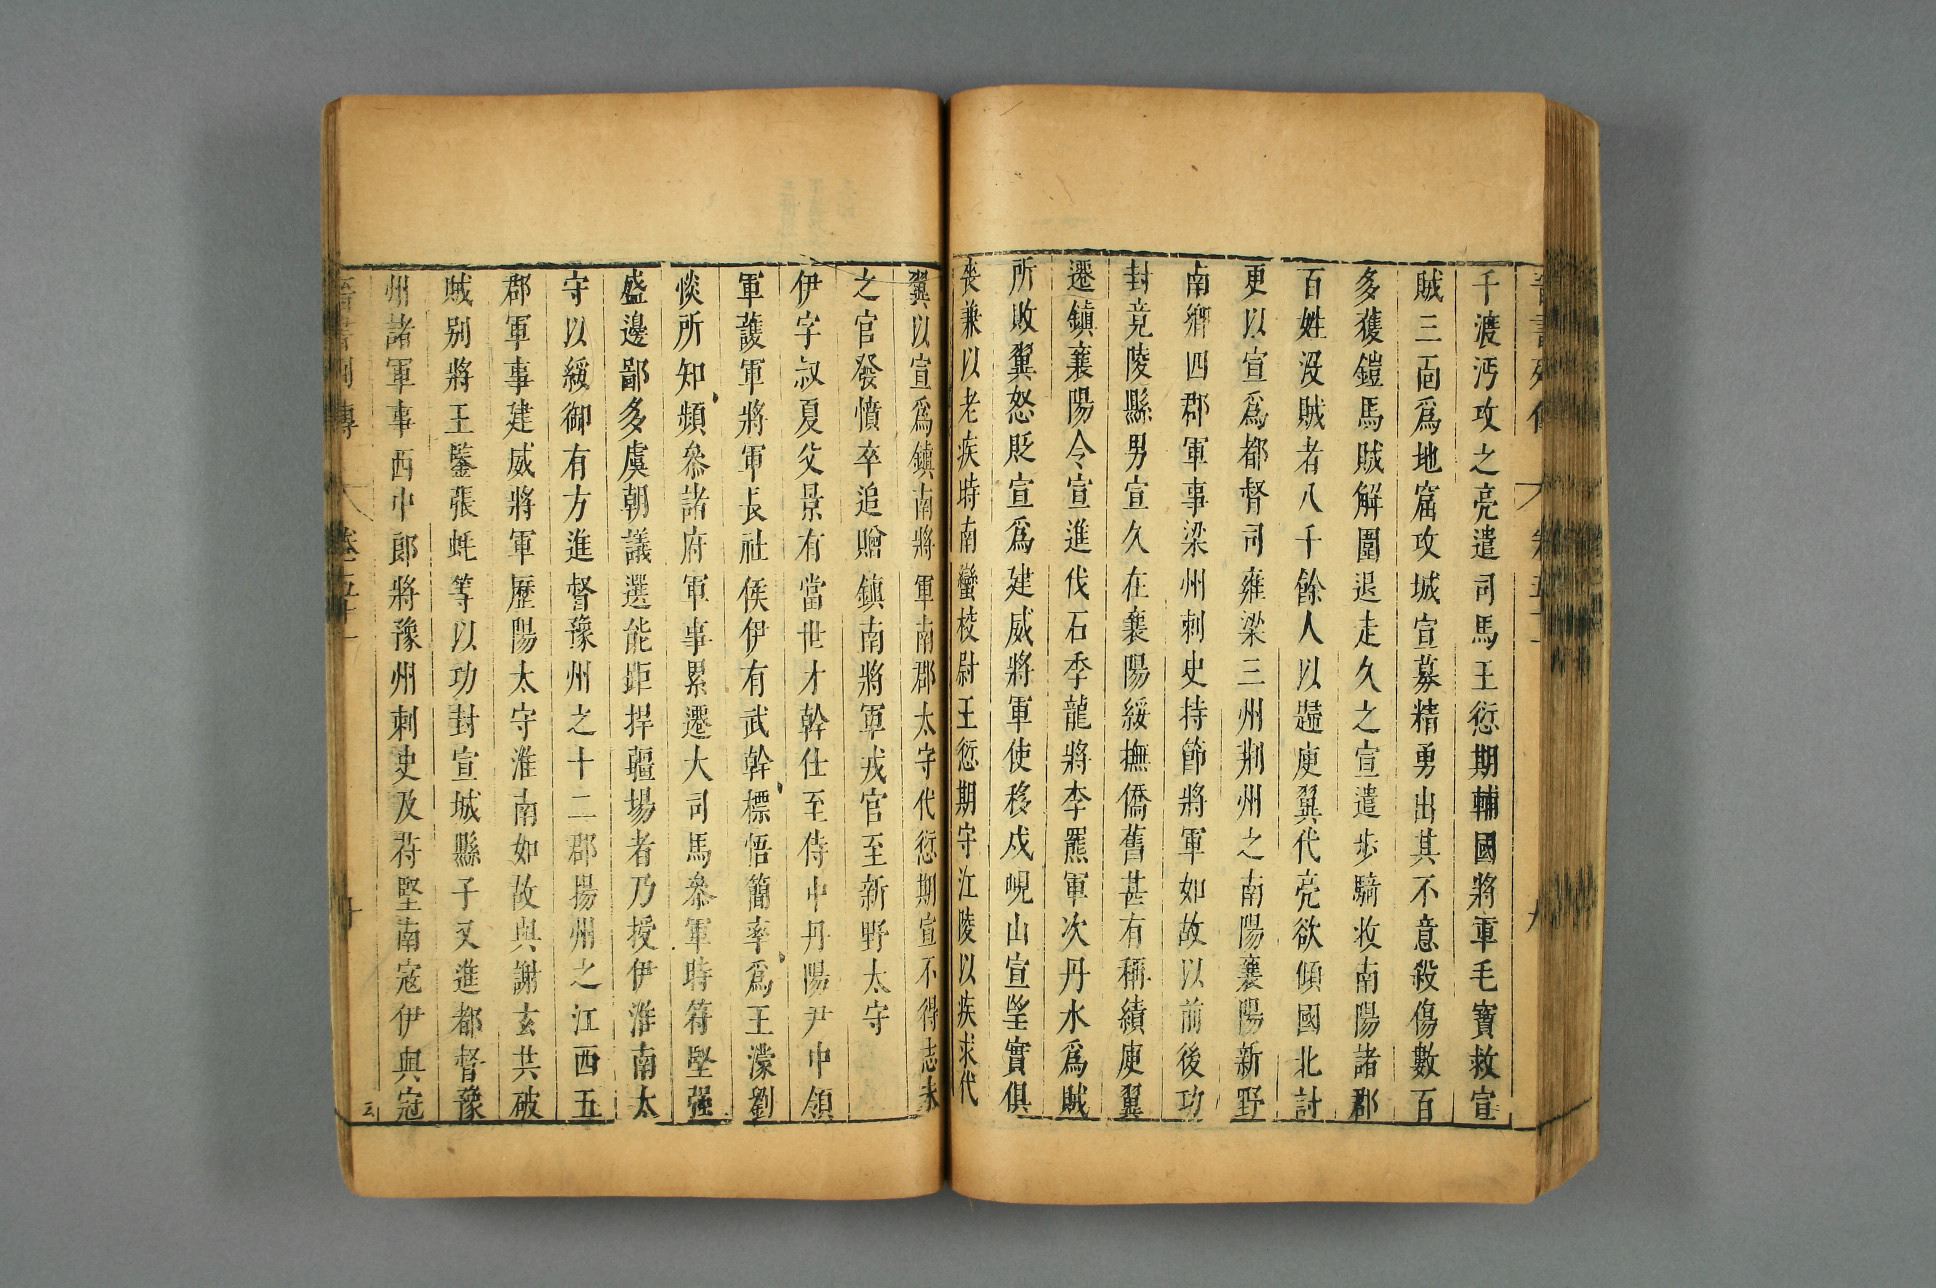 千渡沔攻之亮遣司馬王愆期輔國將軍毛寶救宣
賊三面爲地窟攻城宣募精勇出其不意殺傷數百
多獲鎧馬賊解圍退走久之宣遣步騎收南陽諸郡
百姓沒賊者八千餘人以趨庾翼代亮欲傾國北討
更以宣爲都督司雍梁三州荆州之南陽襄陽新野
南鄉四郡軍事梁州刺史持節將軍如故以前後功
封竟陵縣男宣久在襄陽綏撫僑舊甚有稱績庾翼
遷鎮襄陽令宣進伐石季龍將李羆軍次丹水爲賊
所敗翼怒貶宣爲建威將軍使移戍峴山宣望實俱
喪兼以老疾時南蠻校尉王愆期守江陵以疾求代
翼以宣爲鎮南將軍南郡太守代愆期宣不得志未
之官發憤卒追贈鎮南將軍戎官至新野太守
伊字叔夏父景有當世才幹仕至侍中丹陽尹中領
軍護軍將軍長社侯伊有武幹標悟簡率爲王濛劉
惔所知頻參諸府軍事累遷大司馬參軍時苻堅强
盛邊鄙多虞朝議選能距捍疆場者乃授伊淮南太
守以綏御有方進督豫州之十二郡揚州之江西五
郡軍事建威將軍歷陽太守淮南如故與謝玄共破
賊别將王鑒張蚝等以功封宣城縣子又進都督豫
州諸軍事西中郎將豫州刺史及苻堅南寇伊與冠
晉書列傳 卷五十一 十